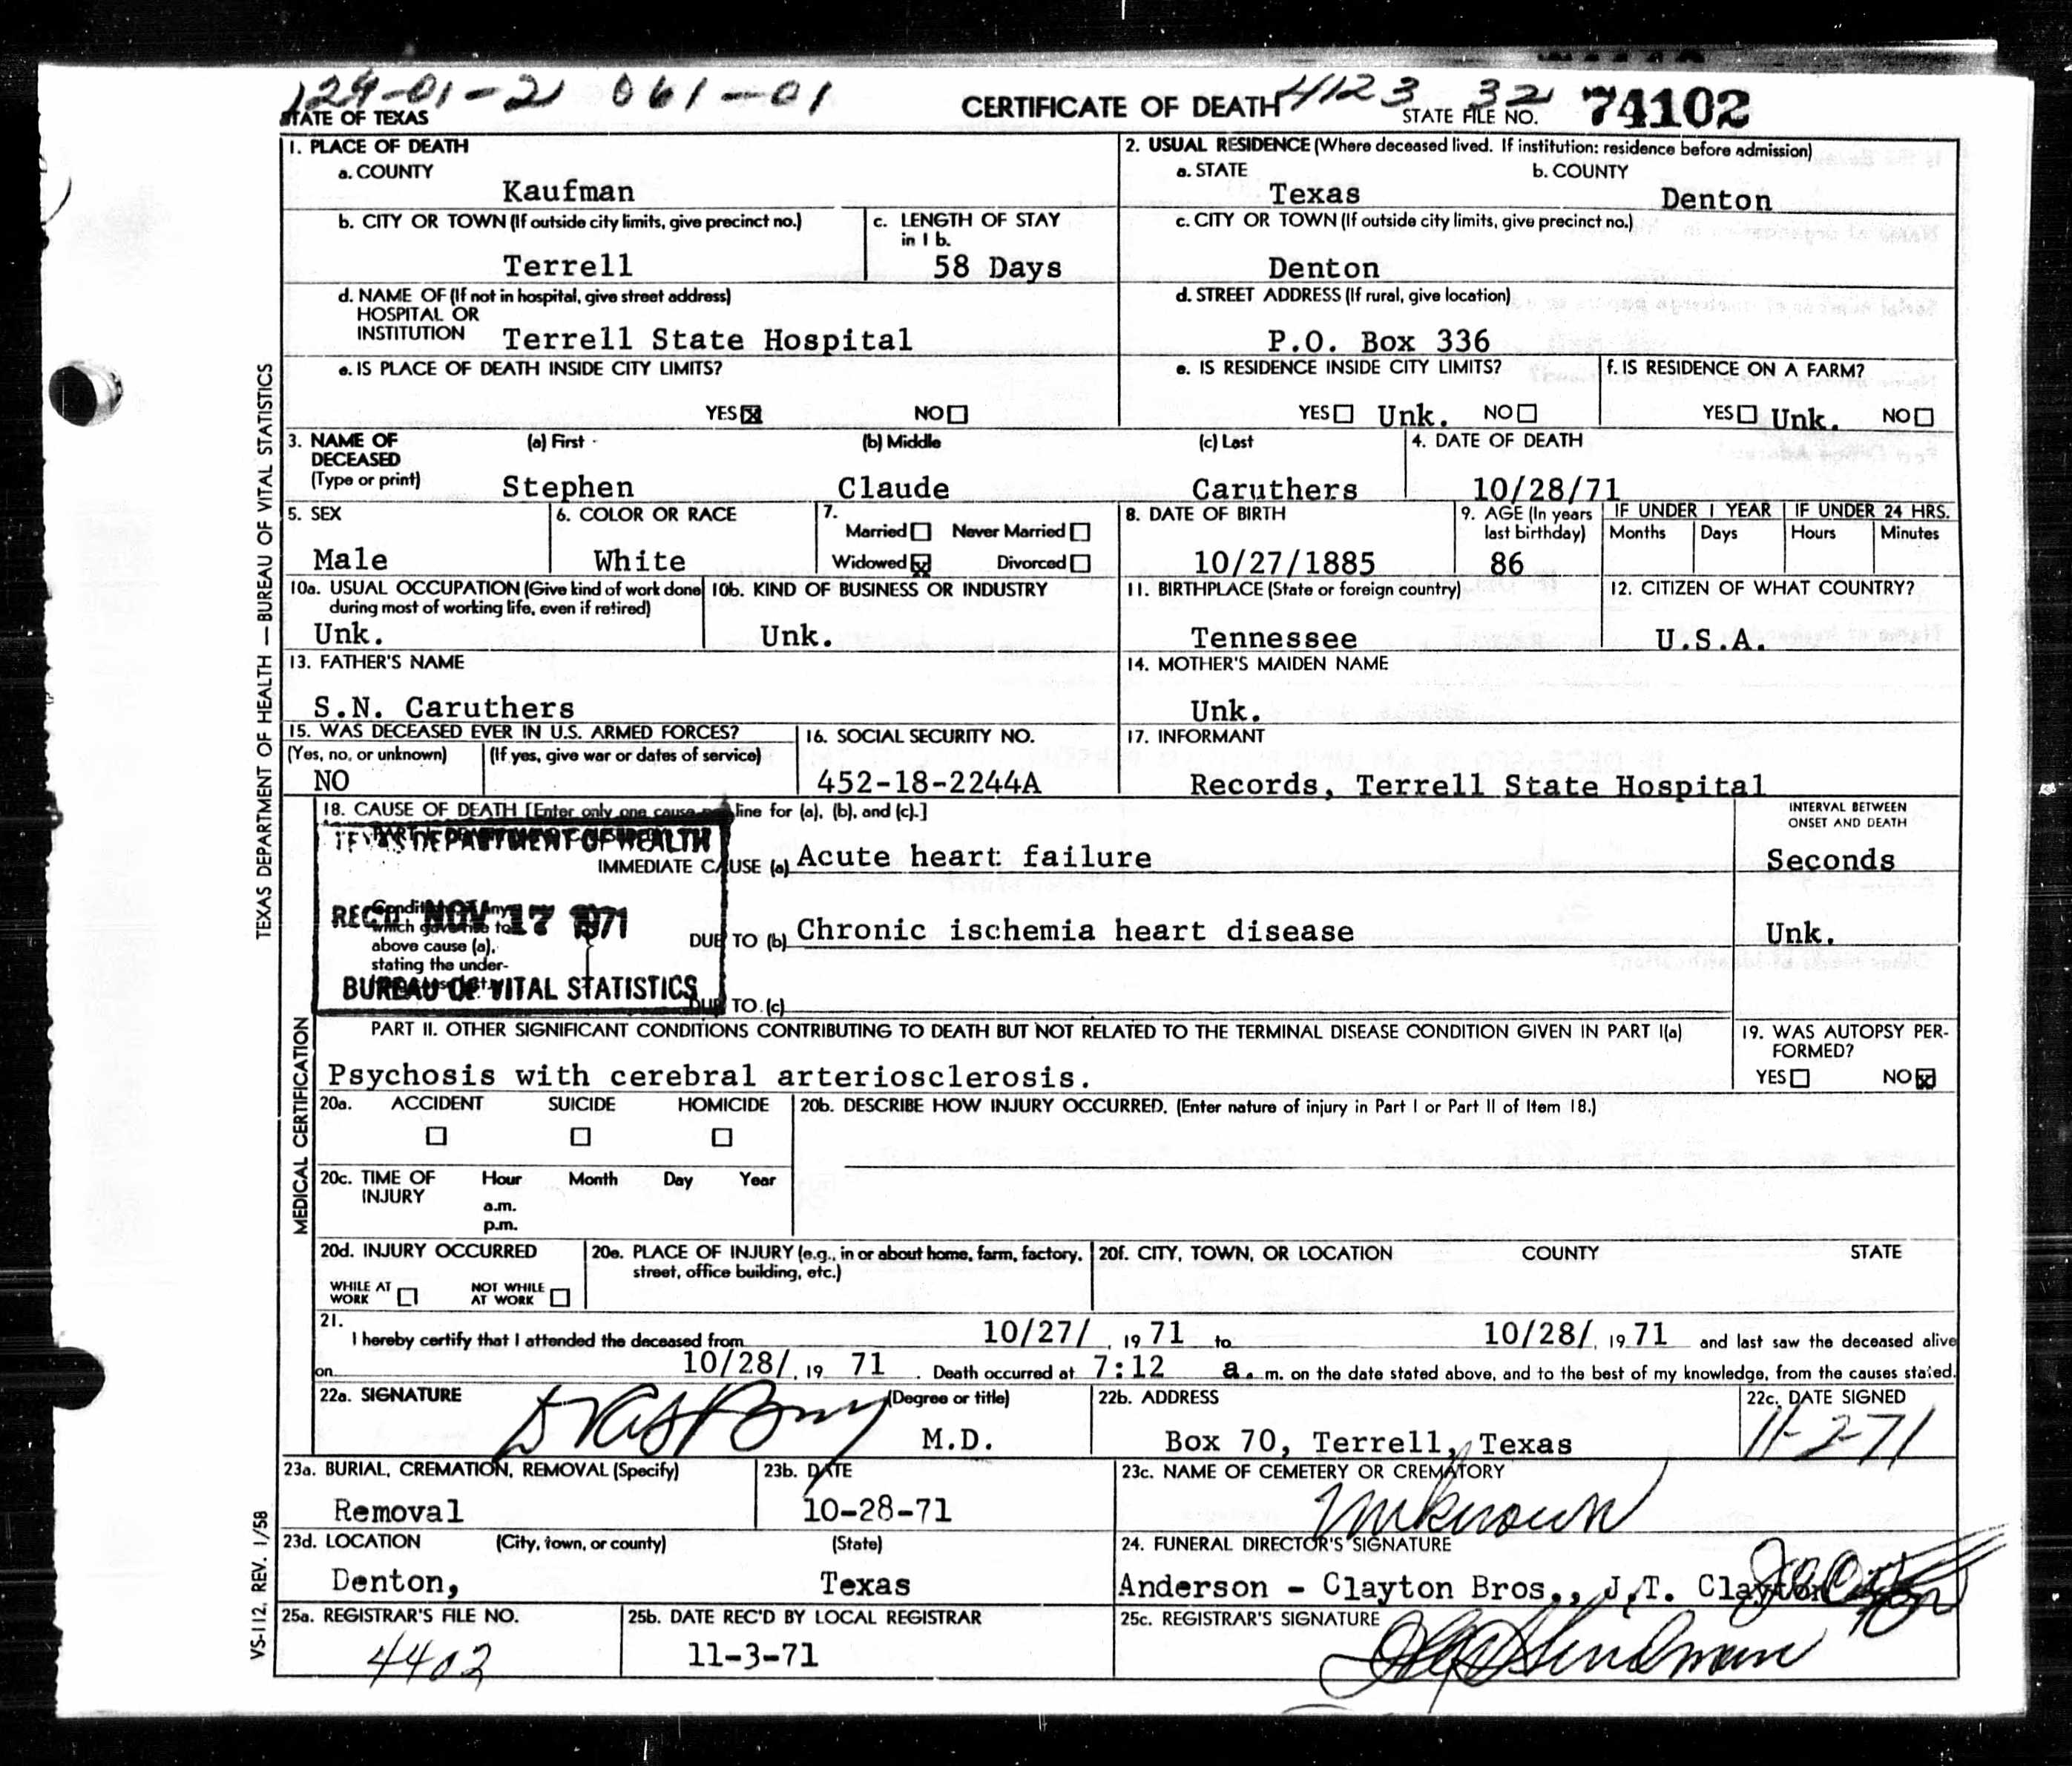 129-01-21 061-01
STATE OF TEXAS
CERTIFICATE OF DEATH 4123 32
STATE FILE NO. 74102
TEXAS DEPARTMENT OF HEALTH — BUREAU OF VITAL STATISTICS
1. PLACE OF DEATH
a. COUNTY
Kaufman
2. USUAL RESIDENCE (Where deceased lived. If institution: residence before admission)
a. STATE
Texas
b. COUNTY
Denton
b. CITY OR TOWN (If outside city limits, give precinct no.)
Terrell
c. LENGTH OF STAY in 1 b.
58 Days
c. CITY OR TOWN (If outside city limits, give precinct no.)
Denton
d. NAME OF (If not in hospital, give street address)
HOSPITAL OR
INSTITUTION
Terrell State Hospital
d. STREET ADDRESS (If rural, give location)
P.O. Box 336
e. IS PLACE OF DEATH INSIDE CITY LIMITS?
YES ☒ NO ☐
e. IS RESIDENCE INSIDE CITY LIMITS?
YES ☐ Unk. NO ☐
f. IS RESIDENCE ON A FARM?
YES ☐ Unk. NO ☐
3. NAME OF
DECEASED
(Type or print)
(a) First
Stephen
(b) Middle
Claude
(c) Last
Caruthers
4. DATE OF DEATH
10/28/71
5. SEX
Male
6. COLOR OR RACE
White
7.
Married ☐ Never Married ☐
Widowed ☒ Divorced ☐
8. DATE OF BIRTH
10/27/1885
9. AGE (In years
last birthday)
86
IF UNDER 1 YEAR
Months Days
IF UNDER 24 HRS.
Hours Minutes
10a. USUAL OCCUPATION (Give kind of work done
during most of working life, even if retired)
Unk.
10b. KIND OF BUSINESS OR INDUSTRY
Unk.
11. BIRTHPLACE (State or foreign country)
Tennessee
12. CITIZEN OF WHAT COUNTRY?
U.S.A.
13. FATHER'S NAME
S.N. Caruthers
14. MOTHER'S MAIDEN NAME
Unk.
15. WAS DECEASED EVER IN U.S. ARMED FORCES?
(Yes, no, or unknown)
NO
(If yes, give war or dates of service)
16. SOCIAL SECURITY NO.
452-18-2244A
17. INFORMANT
Records, Terrell State Hospital
MEDICAL CERTIFICATION
18. CAUSE OF DEATH [Enter only one cause per line for (a), (b), and (c).]
INTERVAL BETWEEN
ONSET AND DEATH
TEXAS DEPARTMENT OF HEALTH
REC'D. NOV 17 1971
BUREAU OF VITAL STATISTICS
IMMEDIATE CAUSE (a) Acute heart failure
Seconds
which gave rise to
above cause (a),
stating the under-
DUE TO (b) Chronic ischemia heart disease
Unk.
DUE TO (c)
PART II. OTHER SIGNIFICANT CONDITIONS CONTRIBUTING TO DEATH BUT NOT RELATED TO THE TERMINAL DISEASE CONDITION GIVEN IN PART I(a)
Psychosis with cerebral arteriosclerosis.
19. WAS AUTOPSY PER-
FORMED?
YES ☐ NO ☒
20a. ACCIDENT ☐ SUICIDE ☐ HOMICIDE ☐
20b. DESCRIBE HOW INJURY OCCURRED. (Enter nature of injury in Part I or Part II of Item 18.)
20c. TIME OF
INJURY
Hour Month Day Year
a.m.
p.m.
20d. INJURY OCCURRED
WHILE AT
WORK ☐
NOT WHILE
AT WORK ☐
20e. PLACE OF INJURY (e.g., in or about home, farm, factory,
street, office building, etc.)
20f. CITY, TOWN, OR LOCATION COUNTY STATE
21.
I hereby certify that I attended the deceased from 10/27/, 19 71 to 10/28/, 19 71 and last saw the deceased alive
on 10/28/, 19 71. Death occurred at 7:12 a. m. on the date stated above, and to the best of my knowledge, from the causes stated.
22a. SIGNATURE
(Degree or title)
M.D.
22b. ADDRESS
Box 70, Terrell, Texas
22c. DATE SIGNED
11-2-71
23a. BURIAL, CREMATION, REMOVAL (Specify)
Removal
23b. DATE
10-28-71
23c. NAME OF CEMETERY OR CREMATORY
Unknown
23d. LOCATION (City, town, or county) (State)
Denton, Texas
24. FUNERAL DIRECTOR'S SIGNATURE
Anderson - Clayton Bros., J.T. Clayton
25a. REGISTRAR'S FILE NO.
4402
25b. DATE REC'D BY LOCAL REGISTRAR
11-3-71
25c. REGISTRAR'S SIGNATURE
VS-112, REV. 1/58